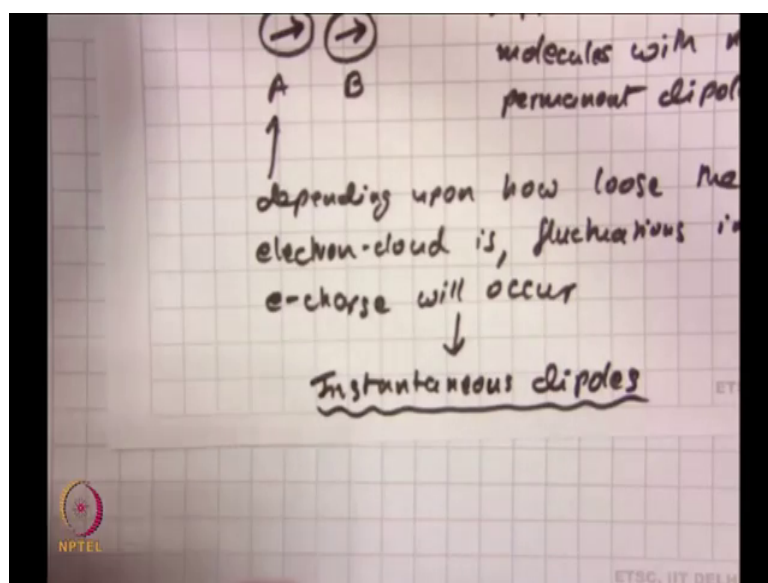 molecules with
A B
permanent dipol
depending upon how loose the
electron-cloud is, fluctuations in
e-charge will occur
Instantaneous dipoles
ET
NPTEL
ETSC, IIT DELH